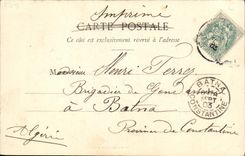 Imprimé
CARTE POSTALE
Ce côté est exclusivement réservé à l'adresse
Monsieur Henri Terres
Brigadier de
à Batna
Province de Constantine
Algérie
BATNA
CONSTANTINE